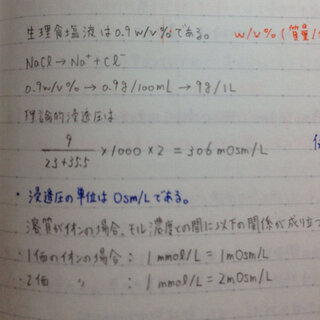 生理食塩液は0.9w/v%である。 w/v%(質量/
NaCl → Na⁺ + Cl⁻
0.9w/v% → 0.9g/100mL → 9g/1L
理論的浸透圧は
9/23+35.5 ×1000×2 = 306mOsm/L
・浸透圧の単位はOsm/Lである。
溶質がイオンの場合、モル濃度との間に以下の関係が成り立つ
・1価のイオンの場合: 1mmol/L = 1mOsm/L
・2価 〃 : 1mmol/L = 2mOsm/L